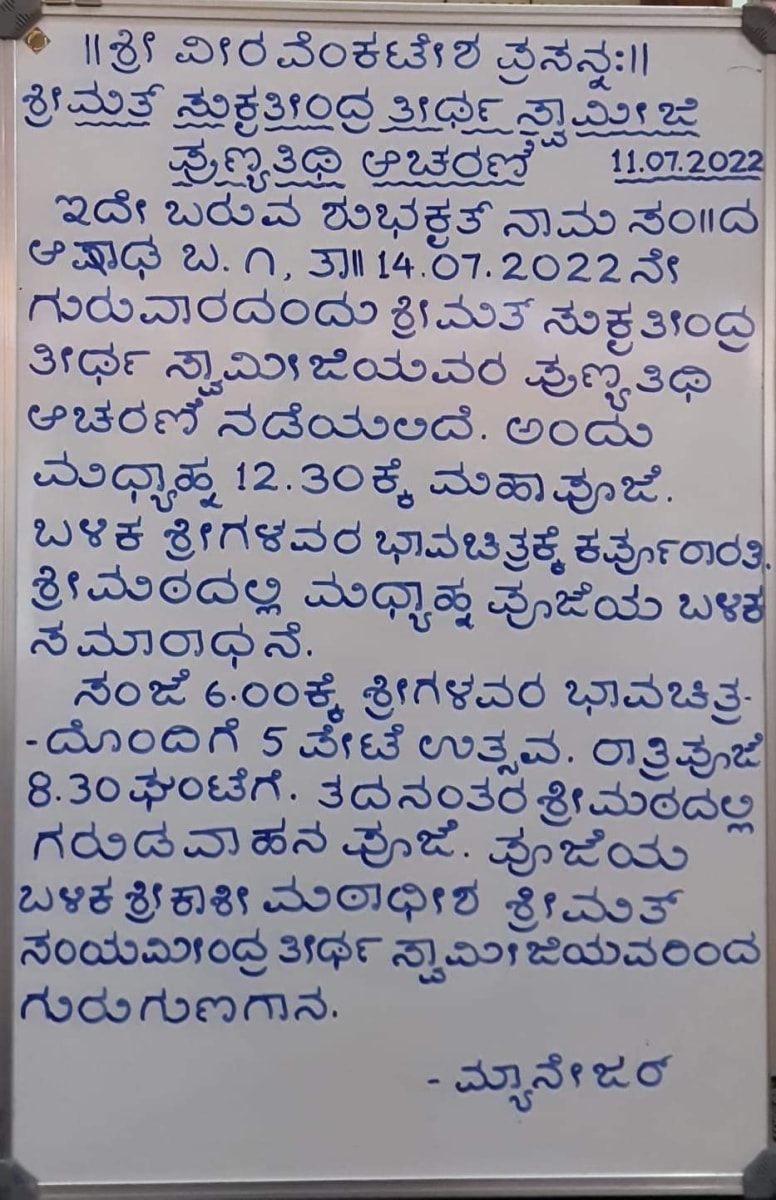 ॥ಶ್ರೀ ವೀರ ವೆಂಕಟೇಶ ಪ್ರಸನ್ನಃ॥
ಶ್ರೀಮತ್ ಸುಕೃತೀಂದ್ರ ತೀರ್ಥ ಸ್ವಾಮೀಜಿ
ಪುಣ್ಯತಿಥಿ ಆಚರಣೆ 11.07.2022
ಇದೇ ಬರುವ ಶುಭಕೃತ್ ನಾಮ ಸಂ॥ದ
ಆಷಾಢ ಬ. ೧, ತಾ॥ 14.07.2022ನೇ
ಗುರುವಾರದಂದು ಶ್ರೀಮತ್ ಸುಕೃತೀಂದ್ರ
ತೀರ್ಥ ಸ್ವಾಮೀಜಿಯವರ ಪುಣ್ಯತಿಥಿ
ಆಚರಣೆ ನಡೆಯಲಿದೆ. ಅಂದು
ಮಧ್ಯಾಹ್ನ 12.30ಕ್ಕೆ ಮಹಾಪೂಜೆ.
ಬಳಿಕ ಶ್ರೀಗಳವರ ಭಾವಚಿತ್ರಕ್ಕೆ ಕರ್ಪೂರಾರತಿ.
ಶ್ರೀಮಠದಲ್ಲಿ ಮಧ್ಯಾಹ್ನ ಪೂಜೆಯ ಬಳಿಕ
ಸಮಾರಾಧನೆ.
ಸಂಜೆ 6.00ಕ್ಕೆ ಶ್ರೀಗಳವರ ಭಾವಚಿತ್ರ-
-ದೊಂದಿಗೆ 5 ಪೇಟೆ ಉತ್ಸವ. ರಾತ್ರಿಪೂಜೆ
8.30 ಘಂಟೆಗೆ. ತದನಂತರ ಶ್ರೀಮಠದಲ್ಲಿ
ಗರುಡವಾಹನ ಪೂಜೆ. ಪೂಜೆಯ
ಬಳಿಕ ಶ್ರೀಕಾಶೀ ಮಠಾಧೀಶ ಶ್ರೀಮತ್
ಸಂಯಮೀಂದ್ರ ತೀರ್ಥ ಸ್ವಾಮೀಜಿಯವರಿಂದ
ಗುರುಗುಣಗಾನ.
- ಮ್ಯಾನೇಜರ್